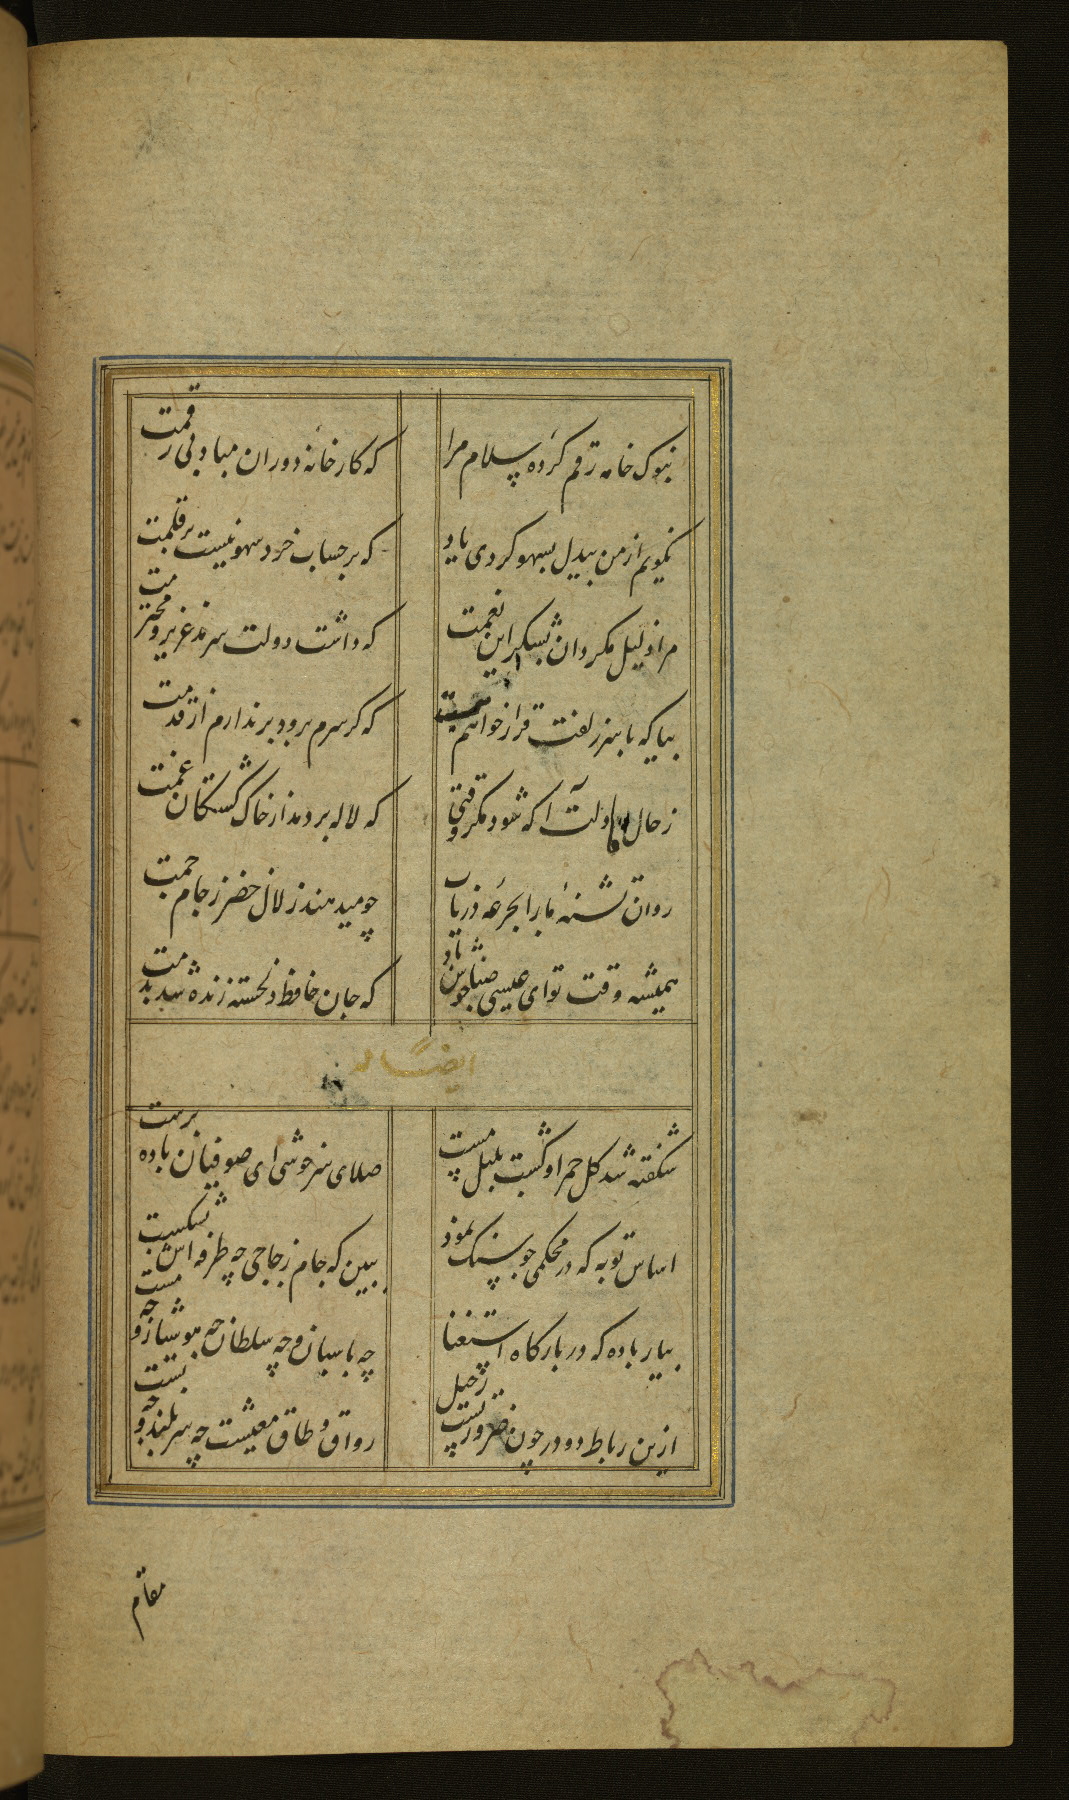 بنوک خامه رقم کرده سلام مرا
که کارخانه دوران مباد بی رقمت
نکویم از من بیدل بسهو کردی یاد
که بر حساب خرد سهو نیست بر قلمت
مرا ذلیل مکردان بشکر این نعمت
که داشت دولت سرمد عزیز و محترمت
بیا که با سر زلفت قرار خواهم بست
که کر سرم برود بر ندارم از قدمت
ز حال ما دلت آکه شود مکر وقتی
که لاله بردمد از خاک کشتکان غمت
روان تشنهٔ ما را بجرعهٔ دریاب
چو میدهند زلال خضر ز جام جمت
همیشه وقت تو ای عیسی صبا خوش باد
که جان حافظ دلخسته زنده شد بدمت
ایضا له
شکفته شد کل حمرا و کشت بلبل مست
صلای سرخوشی ای صوفیان باده پرست
اساس توبه که در محکمی چو سنک نمود
ببین که جام زجاجی چه طرفه اش بشکست
بیار باده که در بارکاه استغنا
چه پاسبان و چه سلطان چه هوشیار و چه مست
ازین رباط دو در چون ضرورتست رحیل
رواق و طاق معیشت چه سربلند و چه پست
مقام